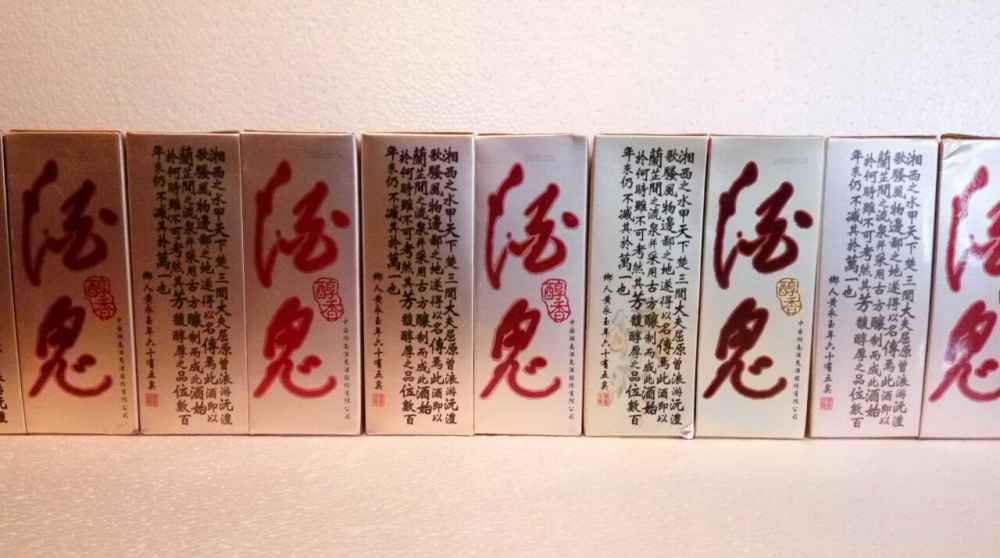 酒鬼
醇香
湘西之水甲天下楚三閭大夫屈原曾浪游沅澧
歌騷風物邊鄙之地遂得以名傳焉此酒即以
蘭芷間之流泉并采用古方釀制而成此酒始
於何時雖不可考然其芳馥醇厚之品位數百
年來仍不減其於萬一也
鄉人黃永玉年六十有五矣
酒鬼
醇香
中国湖南酒鬼酒股份有限公司
湘西之水甲天下楚三閭大夫屈原曾浪游沅澧
歌騷風物邊鄙之地遂得以名傳焉此酒即以
蘭芷間之流泉并采用古方釀制而成此酒始
於何時雖不可考然其芳馥醇厚之品位數百
年來仍不減其於萬一也
鄉人黃永玉年六十有五矣
酒鬼
醇香
中国湖南酒鬼酒股份有限公司
湘西之水甲天下楚三閭大夫屈原曾浪游沅澧
歌騷風物邊鄙之地遂得以名傳焉此酒即以
蘭芷間之流泉并采用古方釀制而成此酒始
於何時雖不可考然其芳馥醇厚之品位數百
年來仍不減其於萬一也
鄉人黃永玉年六十有五矣
酒鬼
醇香
中国湖南酒鬼酒股份有限公司
湘西之水甲天下楚三閭大夫屈原曾浪游沅澧
歌騷風物邊鄙之地遂得以名傳焉此酒即以
蘭芷間之流泉并采用古方釀制而成此酒始
於何時雖不可考然其芳馥醇厚之品位數百
年來仍不減其於萬一也
鄉人黃永玉年六十有五矣
酒鬼